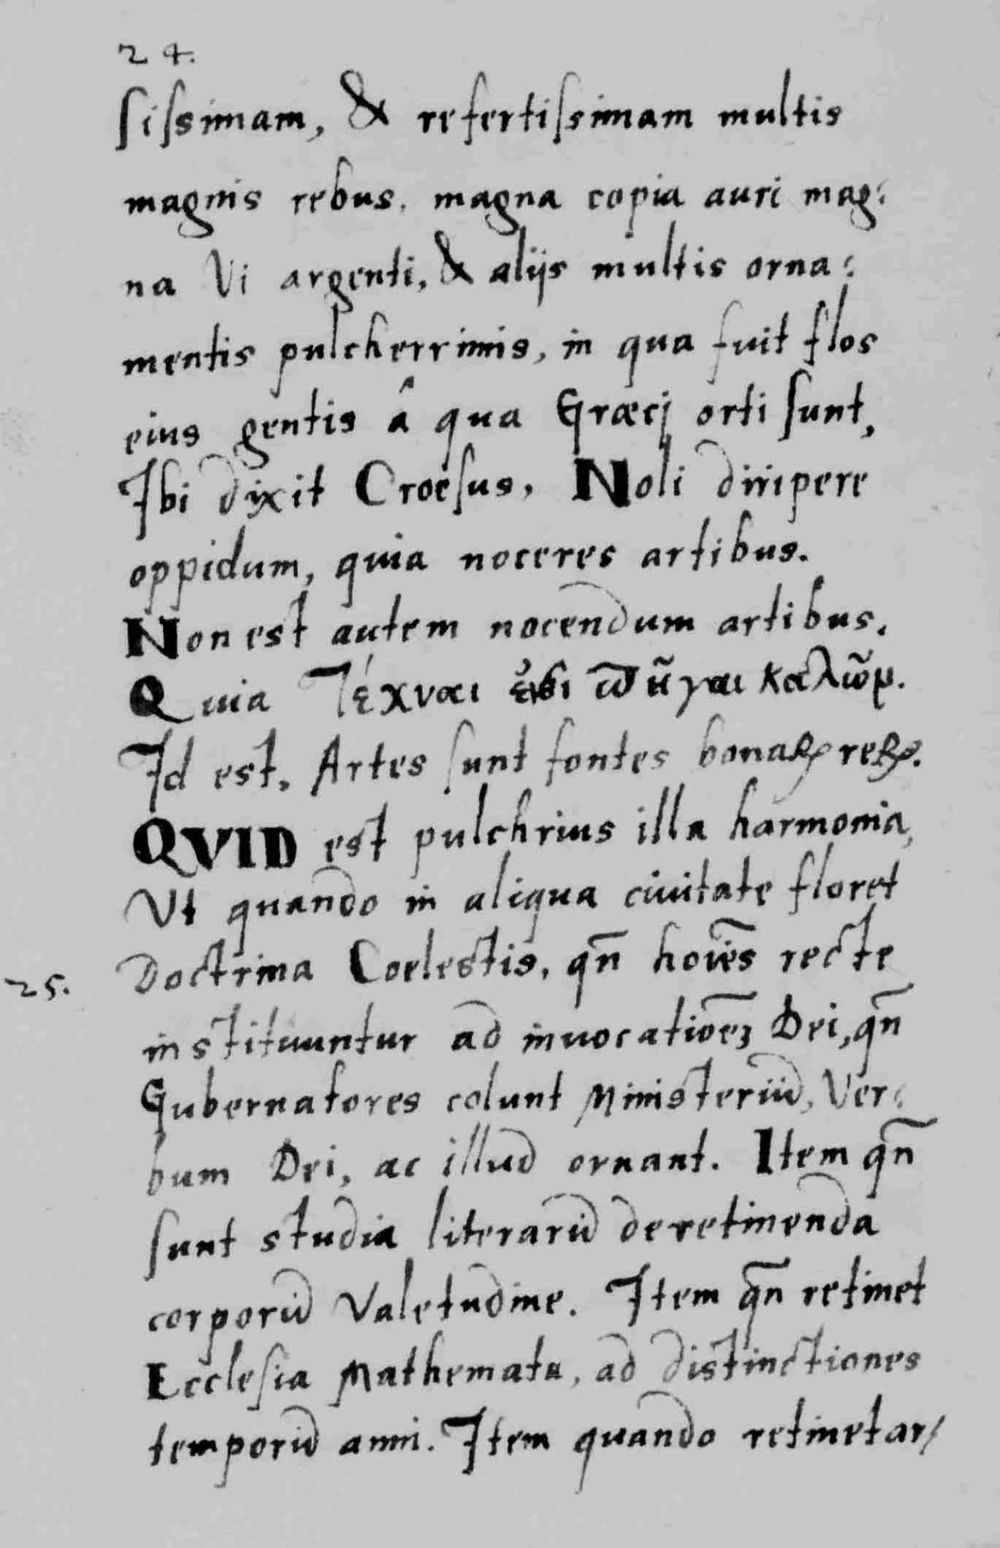 24.
ſiſsimam, & refertiſsimam multis
magnis rebus, magna copia auri mag:
na Vi argenti, & alijs multis orna:
mentis pulcherrimis, in qua fuit flos
eius gentis â qua Græcj orti ſunt,
Ibi dixit Croeſus, Noli diripere
oppidum, quia noceres artibus.
Non est autem nocendum artibus.
Quia Τέχναι καλῶμ.
Id est, Artes ſunt fontes bonaꝝ reꝝ.
QVID est pulchrius illa harmonia,
Vt quando in aliqua ciuitate floret
25. Doctrina Coelestis, qn̄ hoīēs recte
instituuntur ad inuocatiōēȝ Dei, qn̄
Gubernatores colunt Ministeriū, Ver:
bum Dei, ac illud ornant. Item qn̄
ſunt studia literarū de retinenda
corporū Valetudine. Item qn̄ retinet
Eccleſia Mathemata, ad distinctiones
temporū anni. Item quando retinet ar/